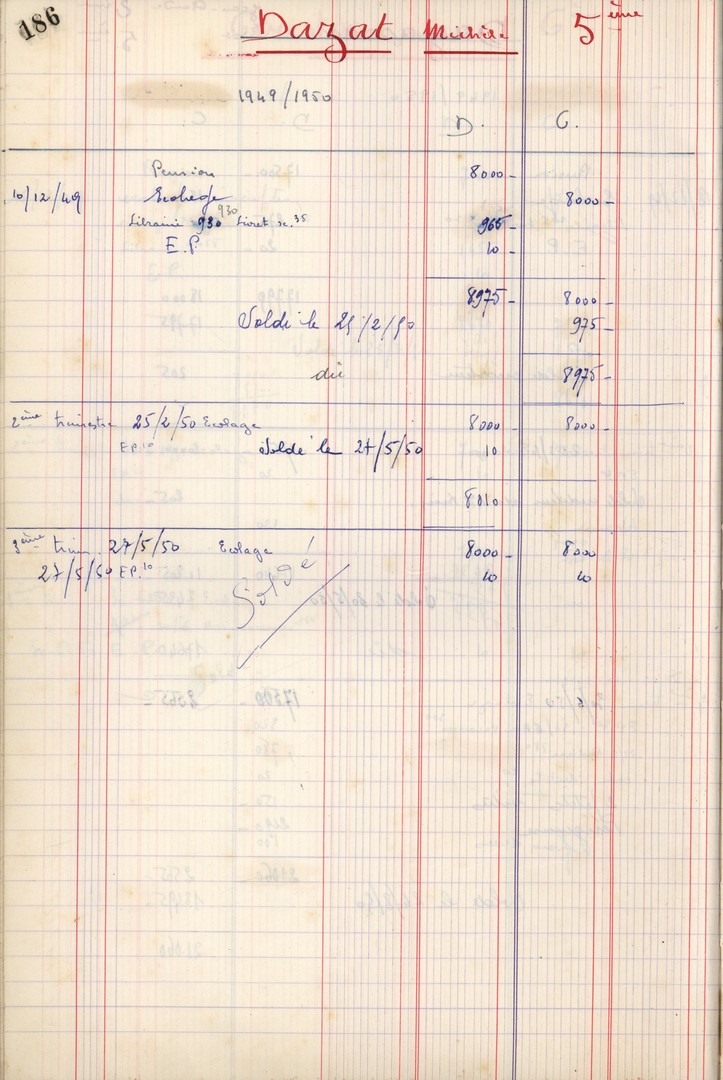 186
Dazat Michèle 5ème
1949/1950
D. C.
Pension 8000-
10/12/49 Ecolage 8000-
930
Librairie 930 Livret sc. 35 965-
E.P. 10-
8975- 8000-
Soldé le 25/2/50 975-
dû 8975-
2ème trimestre 25/2/50 Ecolage 8000- 8000-
E.P. 10 Soldé le 27/5/50 10
8010
3ème trim. 27/5/50 Ecolage 8000- 8000
27/5/50 E.P. 10 10 10
Soldé